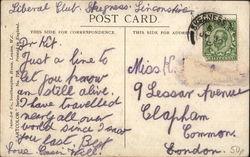 Liberal Club. Skegness. Lincolnshire
POST CARD.
THIS SIDE FOR CORRESPONDENCE.
THIS SIDE FOR ADDRESS.
SKEGNESS
Dr Kit.
Just a line to
let you know
am still alive.
I have travelled
nearly all over
world since I saw
you last. Best
love
Miss
9 Lessar Avenue
Clapham
Common.
London.
50p